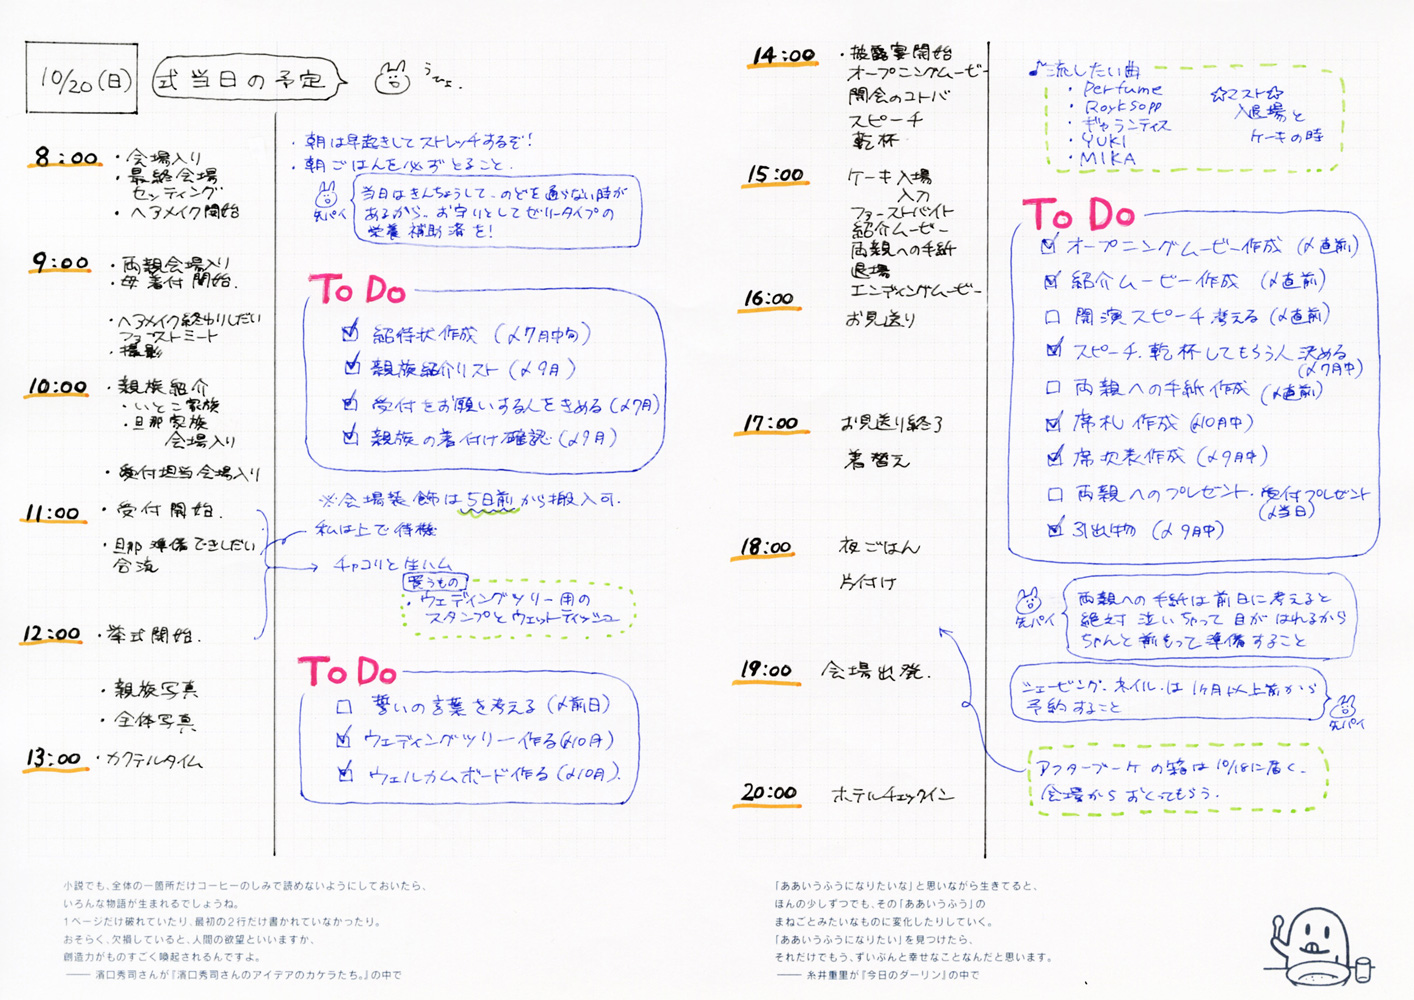 10/20(日)
式当日の予定
うひょ。
8:00
・会場入り
・最終会場
セッティング
・ヘアメイク開始
9:00
・両親会場入り
・母着付開始.
・ヘアメイク終わりしだい
ファーストミート
・撮影
10:00
・親族紹介
・いとこ家族
・旦那家族
会場入り
・受付担当会場入り
11:00
・受付開始.
・旦那準備できしだい
合流
12:00
・挙式開始.
・親族写真
・全体写真
13:00
・カクテルタイム
・朝は早起きしてストレッチするぞ!
・朝ごはんを必ずとること.
先パイ
当日はきんちょうして、のどを通らない時が
あるから、お守りとしてゼリータイプの
栄養補助済を!
To Do
☑ 招待状作成 (〆7月中旬)
☑ 親族紹介リスト (〆9月)
☑ 受付をお願いする人をきめる (〆7月)
☑ 親族の着付け確認 (〆9月)
※会場装飾は5日前から搬入可.
私は上で待機
チャコリと生ハム
買うもの
・ウェディングツリー用の
スタンプとウェットティッシュ
To Do
☐ 誓いの言葉を考える (〆前日)
☑ ウェディングツリー作る (〆10月)
☑ ウェルカムボード作る (〆10月).
小説でも、全体の一箇所だけコーヒーのしみで読めないようにしておいたら、
いろんな物語が生まれるでしょうね。
1ページだけ破れていたり、最初の2行だけ書かれていなかったり。
おそらく、欠損していると、人間の欲望といいますか、
創造力がものすごく喚起されるんですよ。
—— 濱口秀司さんが『濱口秀司さんのアイデアのカケラたち。』の中で
14:00
・披露宴開始
オープニングムービー
開会のコトバ
スピーチ
乾杯
15:00
ケーキ入場
入刀
ファーストバイト
紹介ムービー
両親への手紙
退場
16:00
エンディングムービー
お見送り
17:00
お見送り終了
着替え
18:00
夜ごはん
片付け
19:00
会場出発.
20:00
ホテルチェックイン
♪流したい曲
・Perfume
・Royksopp
・ギャランティス
・YUKI
・MIKA
☆マスト☆
入退場と
ケーキの時
To Do
☑ オープニングムービー作成 (〆直前)
☑ 紹介ムービー作成 (〆直前)
☐ 開演スピーチ考える (〆直前)
☑ スピーチ、乾杯してもらう人決める
(〆7月中)
☐ 両親への手紙作成 (〆直前)
☑ 席札作成 (〆10月中)
☑ 席次表作成 (〆9月中)
☐ 両親へのプレゼント・受付プレゼント
(〆当日)
☑ 引出物 (〆9月中)
先パイ
両親への手紙は前日に考えると
絶対泣いちゃって目がはれるから
ちゃんと前もって準備すること
シェービング・ネイル・は1ヶ月以上前から
予約すること
先パイ
アフターブーケの箱は10/18に届く.
会場からおくってもらう.
「ああいうふうになりたいな」と思いながら生きてると、
ほんの少しずつでも、その「ああいうふう」の
まねごとみたいなものに変化したりしていく。
「ああいうふうになりたい」を見つけたら、
それだけでもう、ずいぶんと幸せなことなんだと思います。
—— 糸井重里が『今日のダーリン』の中で